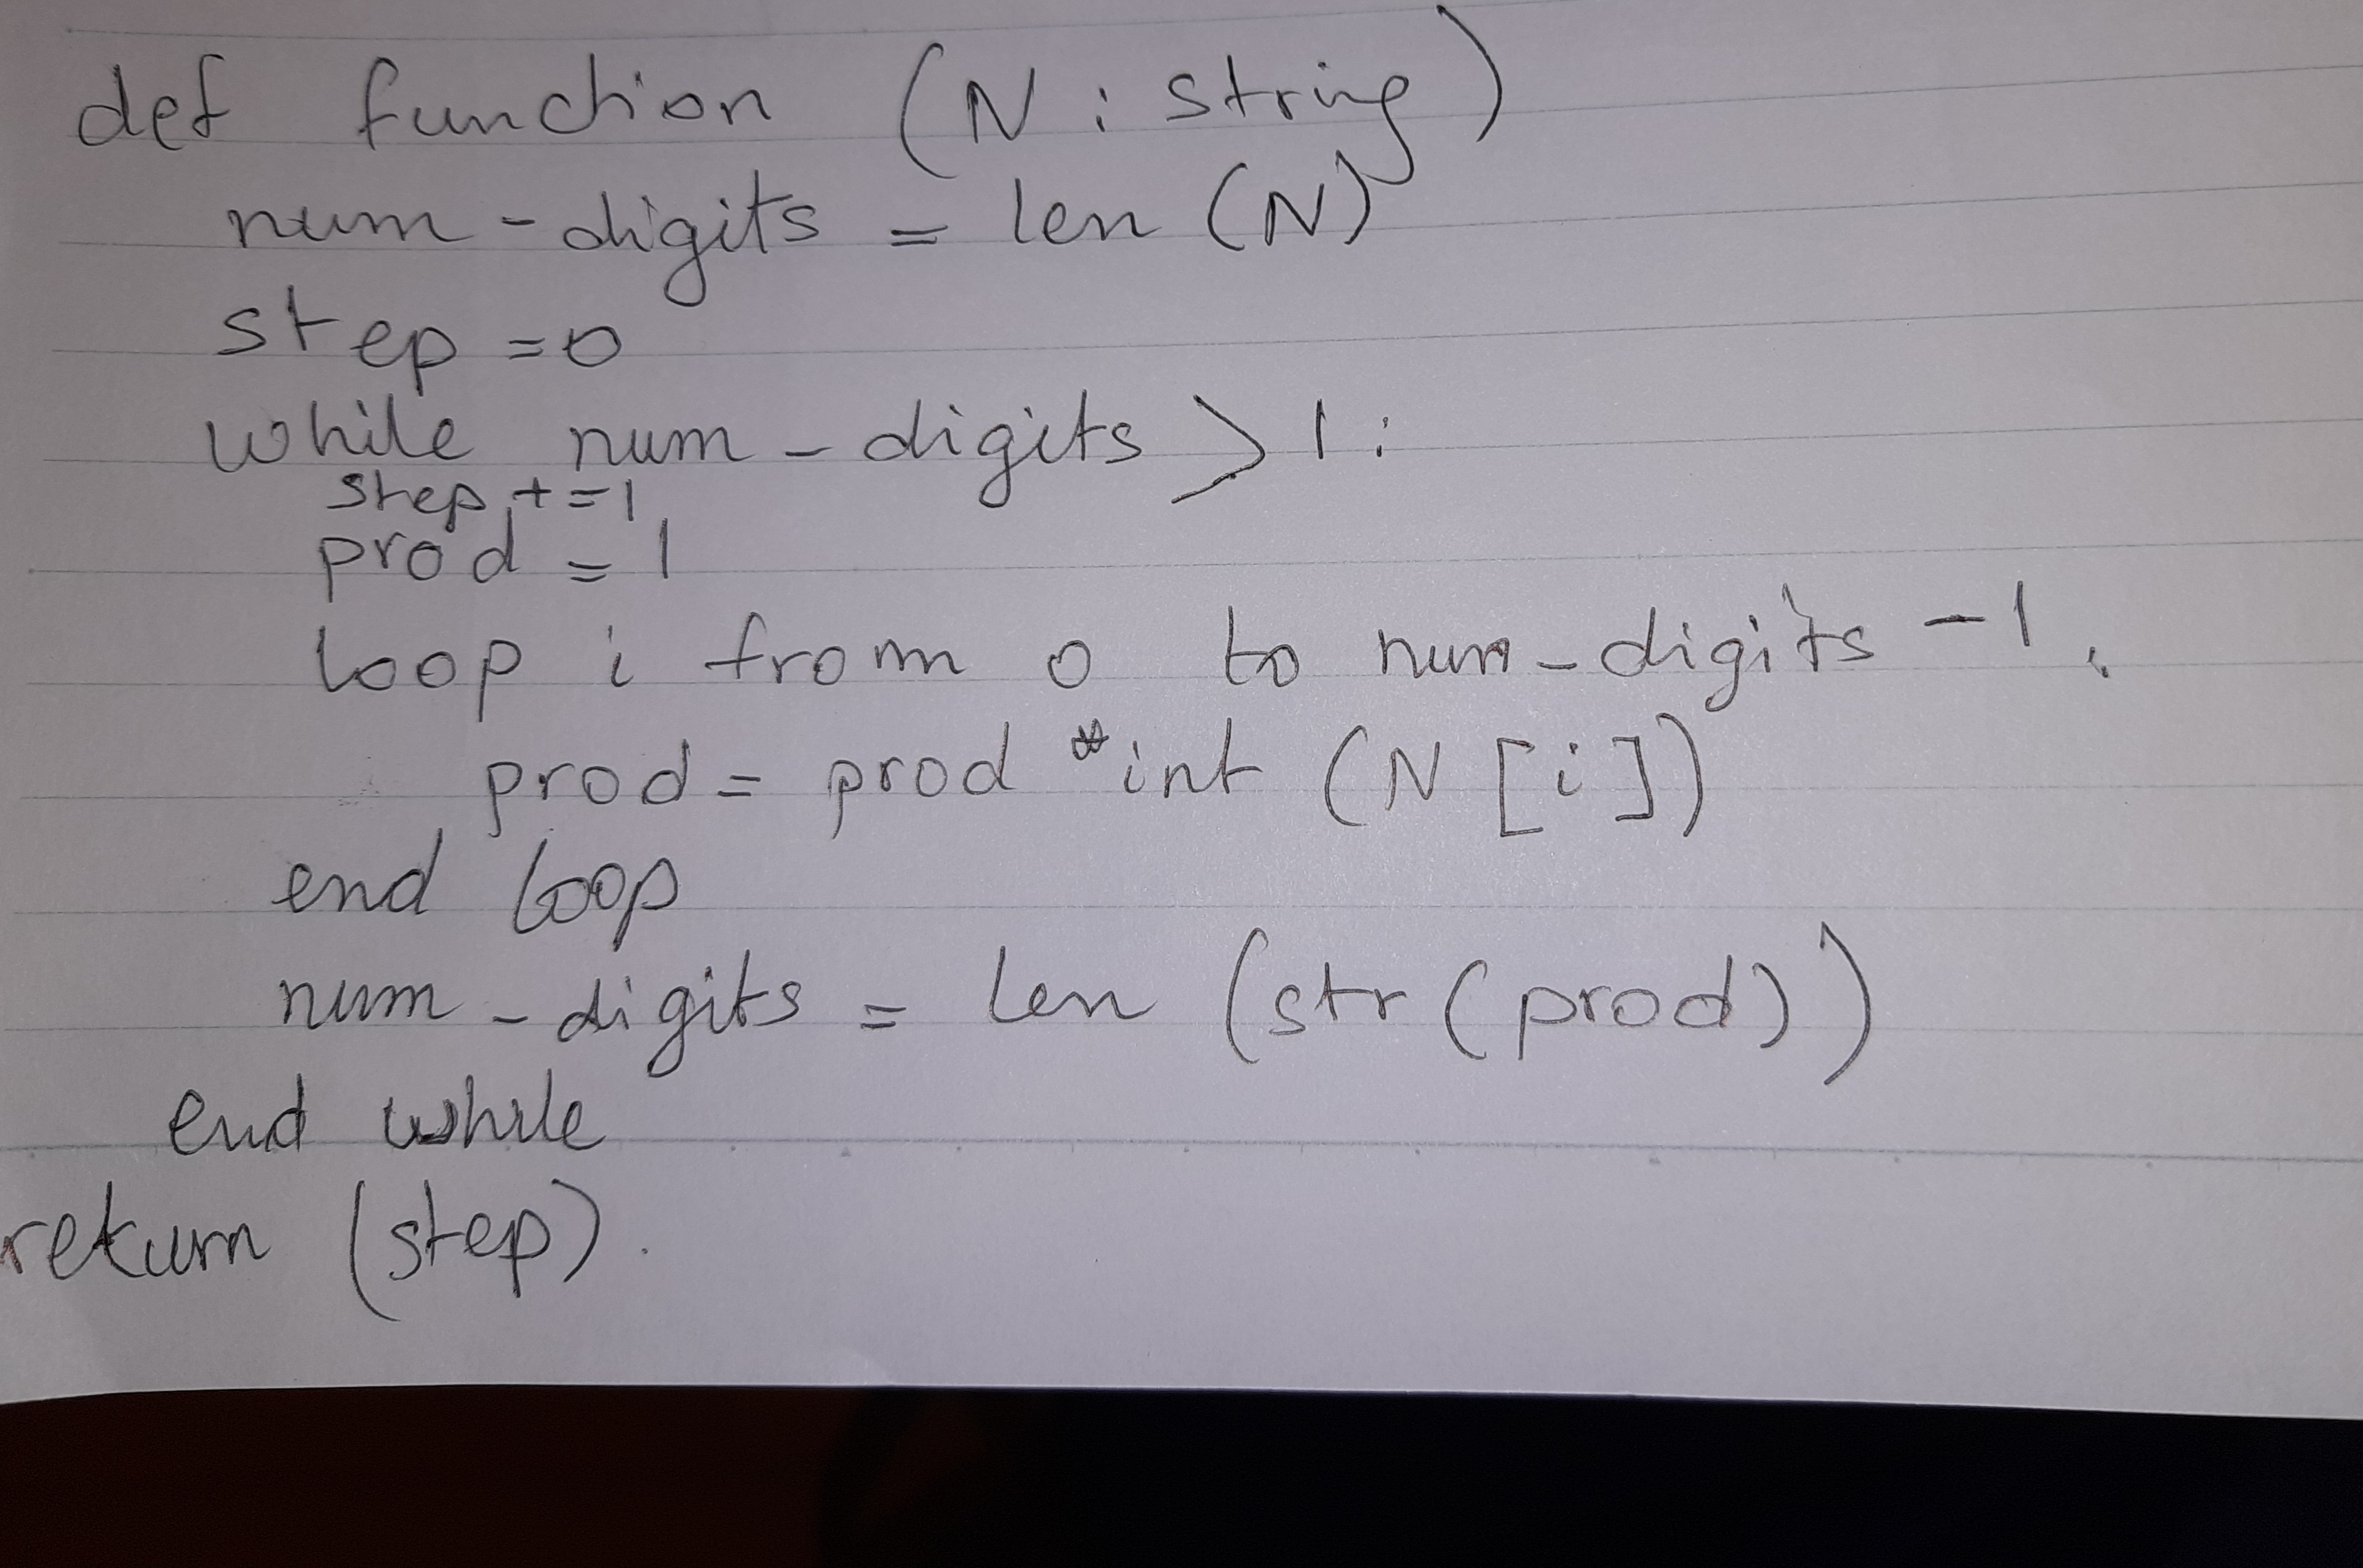 def function (N : string)
num - digits = len (N)
step = 0
while num - digits > 1 :
step += 1
prod = 1
loop i from 0 to num - digits - 1 :
prod = prod * int (N [i])
end loop
num - digits = len (str (prod))
end while
return (step).